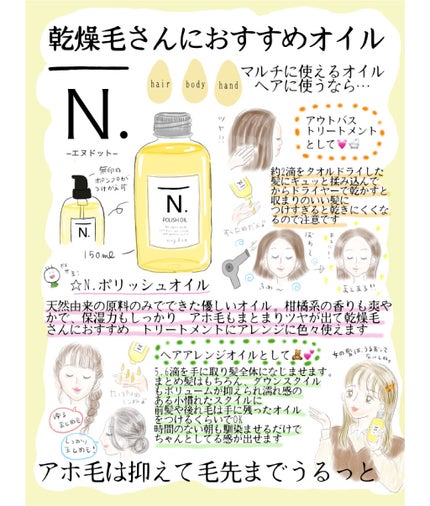 乾燥毛さんにおすすめオイル
N.
−エヌドット−
hair body hand
マルチに使えるオイル
ヘアに使うなら…
アウトバス
トリートメント
として
無印の
ポンプヘッドが
つけかえ可
150ml
N.
POLISH OIL
約2滴をタオルドライした
髪にギュッと揉み込んで
からドライヤーで乾かすと
収まりのいい髪に
つけすぎると乾きにくくな
るので注意です
☆N.ポリッシュオイル
天然由来の原料のみでできた優しいオイル。柑橘系の香りも爽や
かで、保湿力もしっかり アホ毛もまとまりツヤが出て乾燥毛
さんにおすすめ トリートメントにアレンジに色々使えます
ヘアアレンジオイルとして
5.6滴を手に取り髪全体になじませます。
まとめ髪はもちろん、ダウンスタイル
もボリュームが抑えられ濡れ感の
ある小慣れたスタイルに
前髪や後れ毛は手に残ったオイル
をつけるくらいでOK
時間のない朝も馴染ませるだけで
ちゃんとしてる感が出せます
ゆる
まとめも
しっかり
まとめも!
アホ毛は抑えて毛先までうるっと